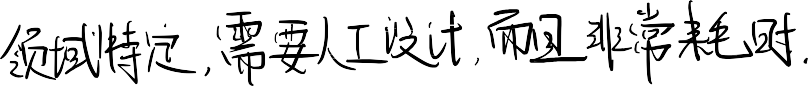 领域特定,需要人工设计,而且非常耗时.